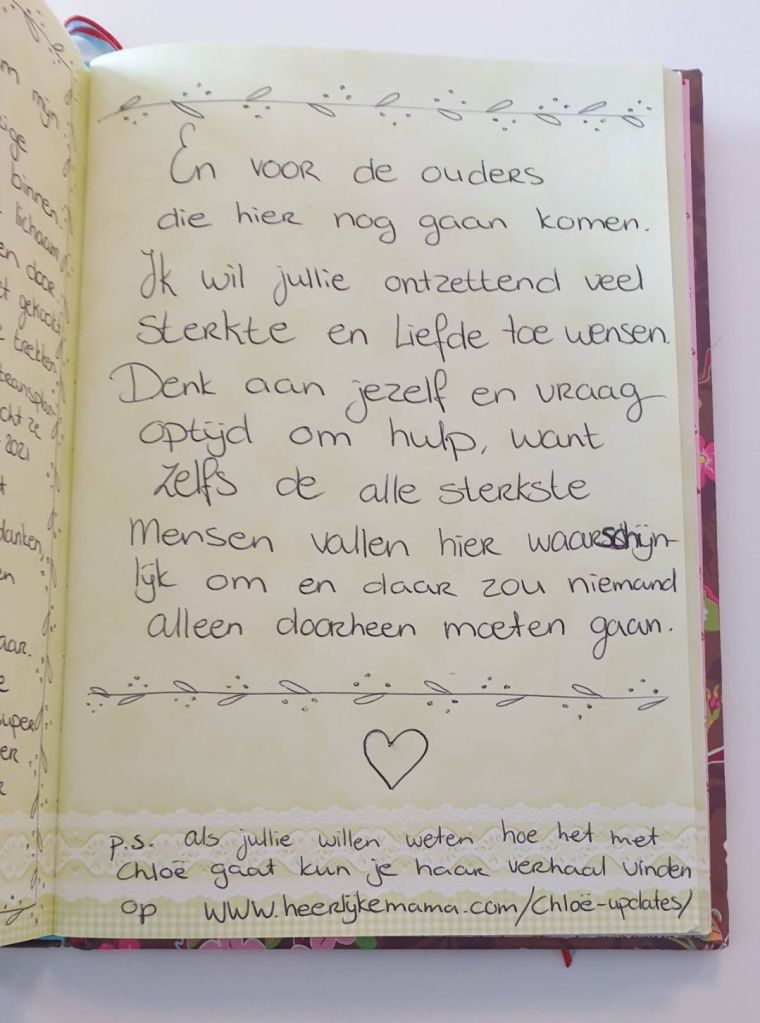 m mijn
sige
binnen.
lichaam
en door.
t gekookt
trekken.
transplan-
cht ze
2021
t
danken,
en
aar.
e
super
er
r
En voor de ouders
die hier nog gaan komen.
Ik wil jullie ontzettend veel
sterkte en Liefde toe wensen.
Denk aan jezelf en vraag
optijd om hulp, want
zelfs de alle sterkste
mensen vallen hier waarschijn-
lijk om en daar zou niemand
alleen doorheen moeten gaan.
p.s. als jullie willen weten hoe het met
Chloë gaat kun je haar verhaal vinden
op www.heerlijkemama.com/Chloë-updates/